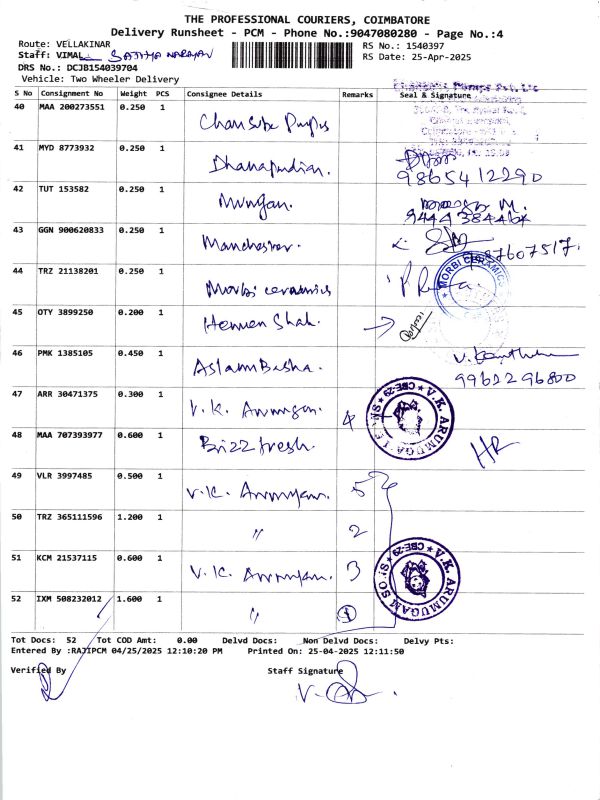 THE PROFESSIONAL COURIERS, COIMBATORE
Delivery Runsheet - PCM - Phone No.:9047080280 - Page No.:4
Route: VELLAKINAR
RS No.: 1540397
Staff: VIMAL
RS Date: 25-Apr-2025
DRS No.: DCJB154039704
Vehicle: Two Wheeler Delivery
S No Consignment No Weight PCS Consignee Details Remarks Seal & Signature
40 MAA 200273551 0.250 1
41 MYD 8773932 0.250 1
9865412290
42 TUT 153582 0.250 1 Murugan.
43 GGN 900620833 0.250 1 Manchester.
44 TRZ 21138201 0.250 1 Morbi ceramics
MORBI CERAMICS
45 OTY 3899250 0.200 1 Hemen Shah.
46 PMK 1385105 0.450 1 Aslam Basha.
9961296800
47 ARR 30471375 0.300 1 V.K. Arumugam. 4
V.K. ARUMUGA CBE-29
48 MAA 707393977 0.600 1 Brizz fresh.
49 VLR 3997485 0.500 1 V.K. Arumugam. 5
50 TRZ 365111596 1.200 1 " 2
51 KCM 21537115 0.600 1 V.K. Arumugam. 3
V.K. ARUMUGAM SONS CBE-29
52 IXM 508232012 1.600 1 " 1
Tot Docs: 52 Tot COD Amt: 0.00 Delvd Docs: Non Delvd Docs: Delvy Pts:
Entered By :RAJIPCM 04/25/2025 12:10:20 PM Printed On: 25-04-2025 12:11:50
Verified By Staff Signature